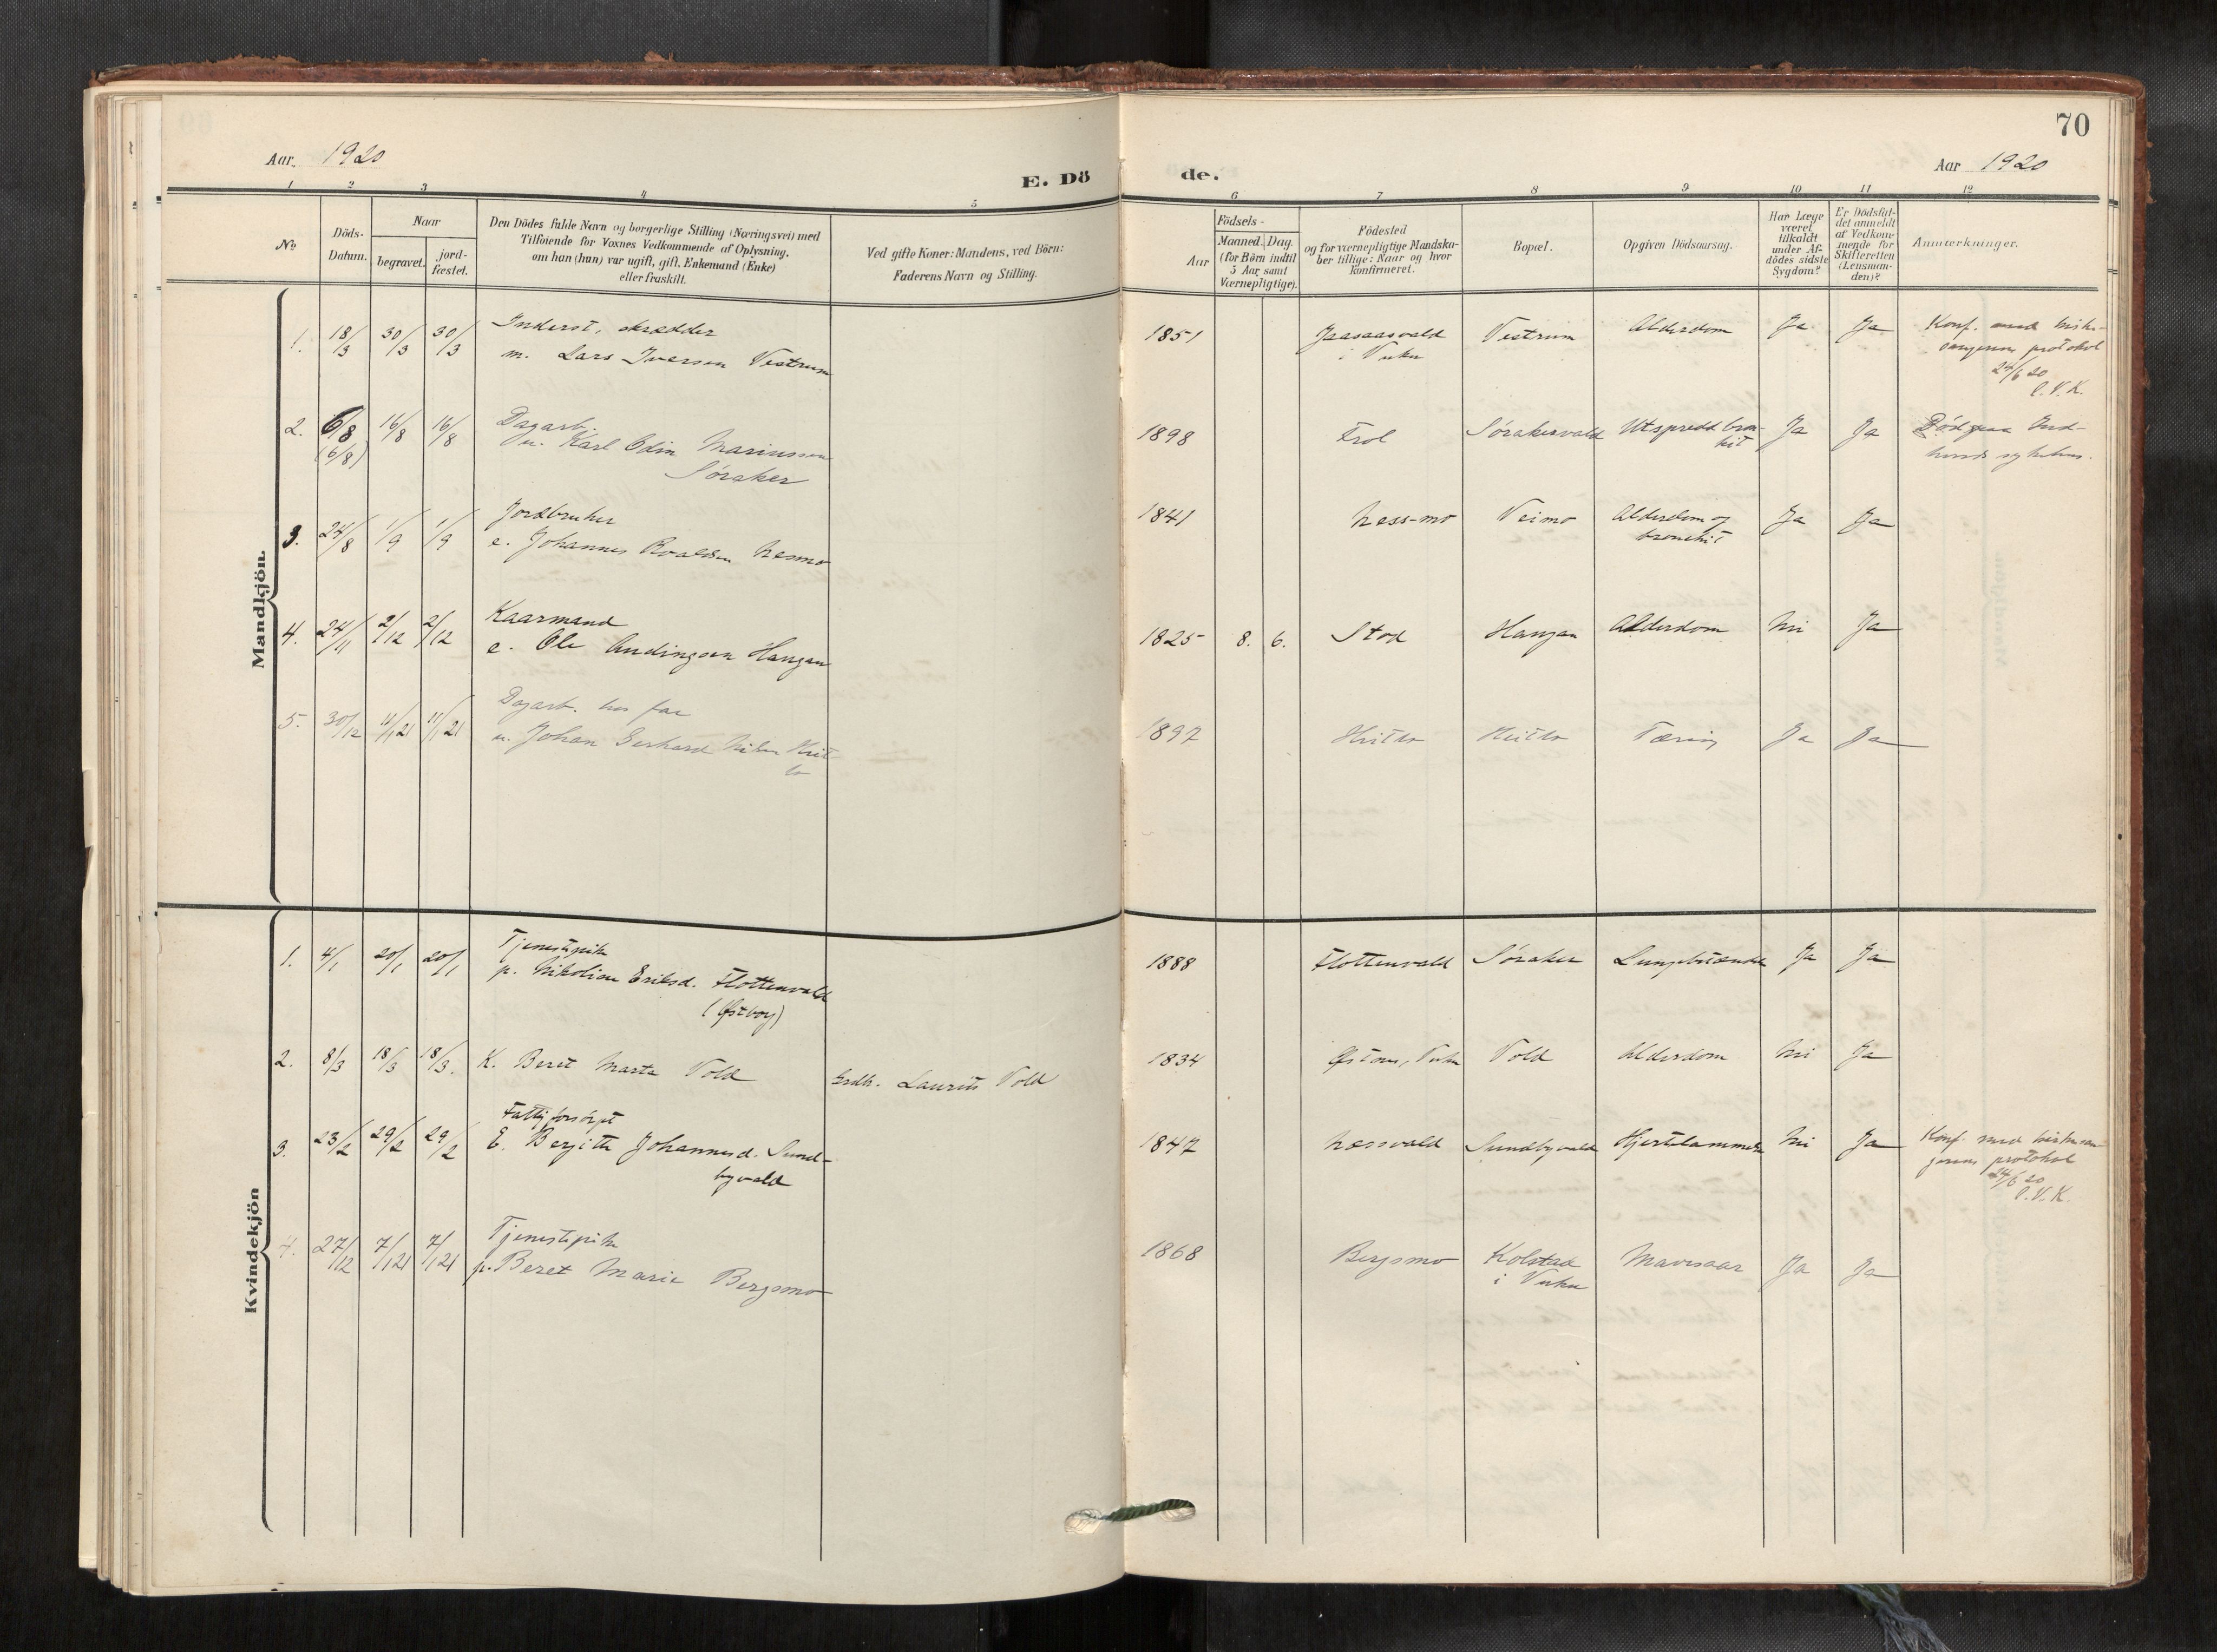 70
Aar. 1920
E. Dö
de.
Aar 1920
1 2 3 4 5
6 7 8 9 10 11 12
No
Döds-
Datum.
Naar
begravet.
jord-
fæstet.
Den Dödes fulde Navn og borgerlige Stilling (Næringsvei) med
Tilföiende for Voxnes Vedkommende af Oplysning,
om han (hun) var ugift, gift, Enkemand (Enke)
eller fraskilt.
Ved gifte Koner: Mandens, ved Börn:
Faderens Navn og Stilling.
Födsels-
Aar
Maaned. Dag.
(for Börn indtil
5 Aar samt
Værnepligtige).
Födested
og for værnepligtige Mandska-
ber tillige: Naar og hvor
konfirmeret.
Bopæl.
Opgiven Dödsaarsag.
Har Læge
været
tilkaldt
under Af-
dödes sidste
Sygdom?
Er Dödsfal-
det anmeldt
af Vedkom-
mende for
Skifteretten
(Lensman-
den)?
Anmærkninger.
Mandkjön.
1. 18/3 30/3 30/3
Inderst, skrædder
m. Lars Iversen Vestrum
1851
i Vuku
Vestrum
Alderdom
Ja
Ja
Konf. med
protokol
24/6 20
2. 6/8 16/8 16/8
(6/8)
Dagarb.
u. Karl Odin Mariussen
Søraker
1898
Frol
Sørakervald
Utspredd bron-
kit
Ja
Ja
Død paa Ind-
herreds sykehus.
3. 24/8 1/9 1/9
Jordbruker
e. Johannes Roaldsen Nesmo
1841
Ness-mo
Veimo
Alderdom og
bronchit
Ja
Ja
4. 24/11 2/12 2/12
Kaarmand
e. Ole Andingsen Haugan
1825 8. 6.
Stod
Haugan
Alderdom
Nei
Ja
5. 30/12 11/1 21 11/1 21
Dagarb. hos far
u. Johan Gerhard
1897
Tæring
Ja
Ja
Kvindekjön
1. 4/1 20/1 20/1
Tjenestepike
p. Nikoline Eriksd. Flottenvald
(Østboy)
1888
Flottenvald
Søraker
Lungebetændel
Ja
Ja
2. 8/3 18/3 18/3.
K. Beret Marta Vold
Grdb. Laurits Vold
1834
Vuku
Vold
Alderdom
Nei
Ja
3. 23/2 29/2 29/2
Fattigforsørget
E. Bergitte Johannesd. Sund-
byvald
1847
Næssvald
Sundbyvald
Hjertelammelse
Nei
Ja
Konf. med
protokol
24/6 20
4. 27/12 7/1 21 7/1 21
Tjenestepike
p. Beret Marie Bergsmo
1868
Bergsmo
Kolstad
i Vuku
Mavesaar
Ja
Ja